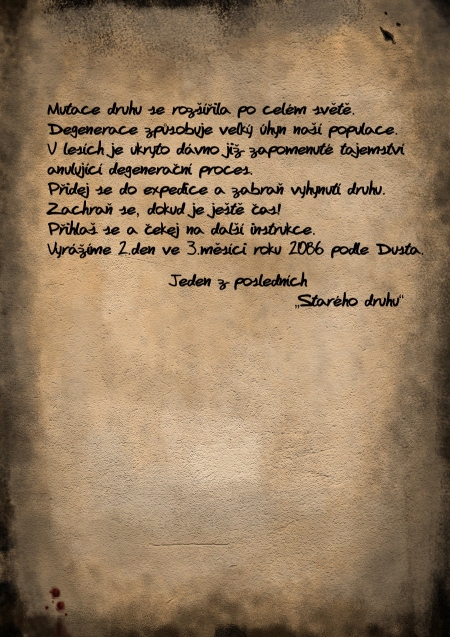 Mutace druhu se rozšířila po celém světě.
Degenerace způsobuje velký úhyn naší populace.
V lesích je ukryto dávno již zapomenuté tajemství
anulující degenerační proces.
Přidej se do expedice a zabraň vyhynutí druhu.
Zachraň se, dokud je ještě čas!
Přihlaš se a čekej na další instrukce.
Vyrážíme 2.den ve 3.měsíci roku 2086 podle Dusta.
Jeden z posledních
„Starého druhu“